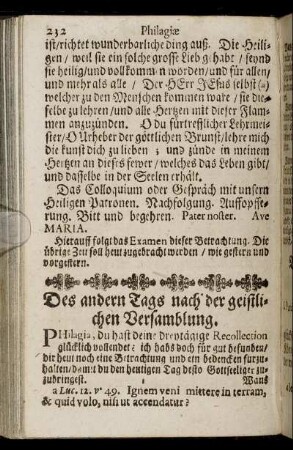 232 Philagiæ
ist/richtet wunderbarliche ding auß. Die Heili-
gen / weil sie ein solche grosse Lieb gehabt / seynd
sie heilig/und vollkommen worden/und für allen/
und mehr als alle / Der HErr JEsus selbst (a)
welcher zu den Menschen kommen ware / sie die-
selbe zu lehren/und alle Hertzen mit dieser Flam-
men anzuzünden. O du fürtrefflicher Lehrmei-
ster/O Urheber der göttlichen Brunst/lehre mich
die kunst dich zu lieben ; und zünde in meinem
Hertzen an dieses fewer / welches das Leben gibt/
und dasselbe in der Seelen erhält.
Das Colloquium oder Gespräch mit unsern
Heiligen Patronen. Nachfolgung. Auffopffe-
rung. Bitt und begehren. Pater noster. Ave
MARIA.
Hierauff folgt das Examen dieser Betrachtung. Die
übrige Zeit soll heut zugebracht werden / wie gestern und
vorgestern.
Des andern Tags nach der geistli-
chen Versamblung.
PHilagia, du hast deine dreytägige Recollection
glücklich vollendet: ich habs doch für gut befunden/
dir heut noch eine Betrachtung und ein bedencken fürzu-
halten/damit du den heutigen Tag desto Gottseeliger zu-
zubringest. Wans
a Luc. 12. v. 49. Ignem veni mittere in terram,
& quid volo, nisi ut accendatur?